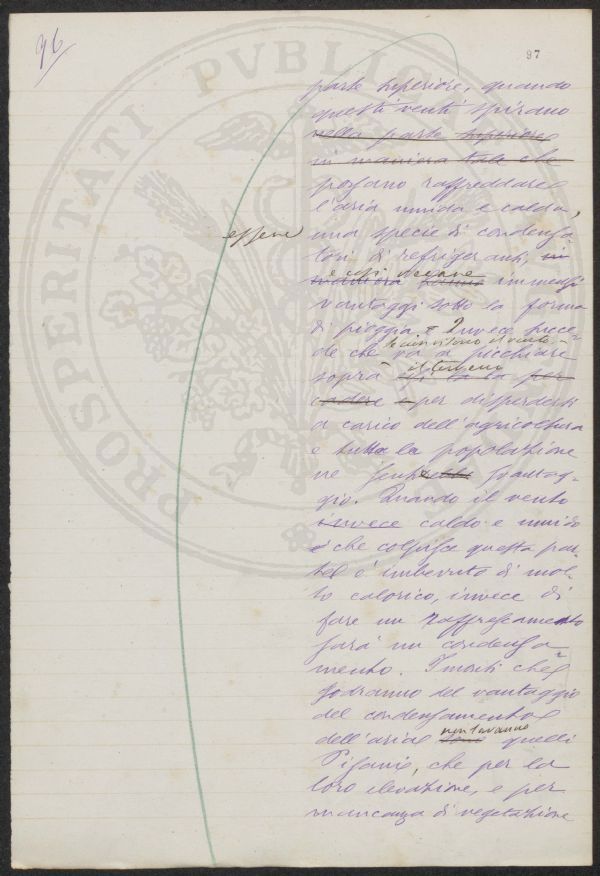 96
97
PROSPERITATI PVBLICAE
parte superiore, quando
questi venti spirano
nella parte superiore
in maniera tale che
possano raffreddare
l'aria umida e calda,
essere
una specie di condensa
tori di refrigeranti, in
e così recare
maniera immensi
vantaggi sotto la forma
di pioggia e Invece succe-
il vento
de che va a picchiare
il terreno
sopra per
cadere e per disperdersi
a carico dell'agricoltura
e tutta la popolazione
ne svantag-
gio. Quando il vento
invece caldo e umido
è che colpisce questa par
te è imbevuto di mol-
to calorico, invece di
fare un raffrescamento
farà un condensa-
mento. I monti che
godranno del vantaggio
del condensamento
non saranno
dell'aria sono quelli
Pisani, che per la
loro elevazione, e per
mancanza di vegetazione